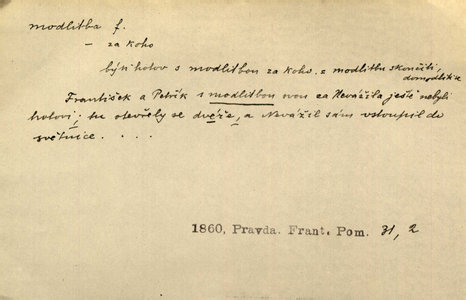 modlitba f.
– za koho
býti hotov s modlitbou za koho = modlitbu skončiti,
domodliti se
František a Patřík s modlitbou svou za Nevážila ještě nebyli
hotovi; tu otevřely se dvéře, a Nevážil sám vstoupil do
světnice. . . .
1860, Pravda. Frant. Pom. 31, 2